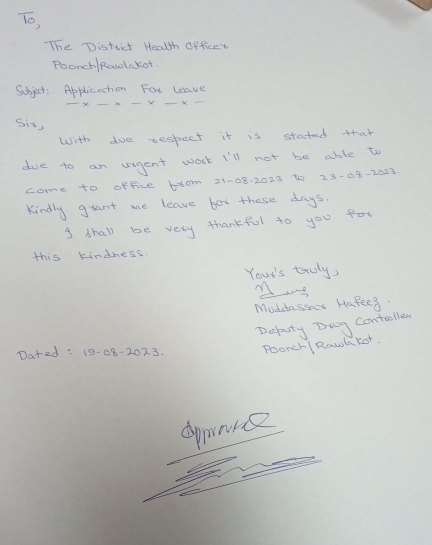 To,
The District Health Officer
Poonch/Rawlakot.
Subject: Application For Leave
Sir,
With due respect it is stated that
due to an urgent work I'll not be able to
come to office from 21-08-2023 to 23-08-2023.
Kindly grant me leave for these days.
I shall be very thankful to you for
this kindness.
Your's truly,
Muddassar Hafeez.
Deputy Drug Controller
Poonch/Rawlakot.
Dated : 19-08-2023.
Approved